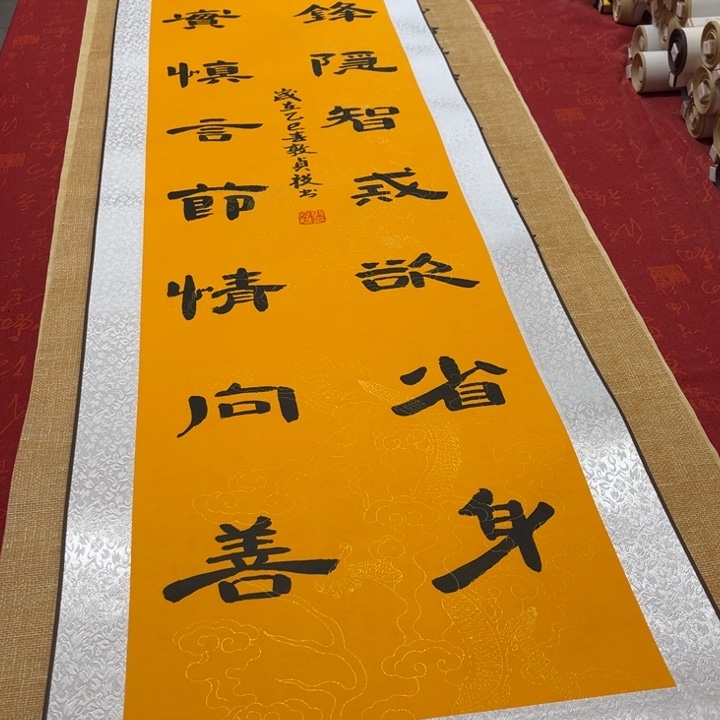 鋒隱智戒欲省身
實慎言節情向善
歲在乙巳春敦貞书